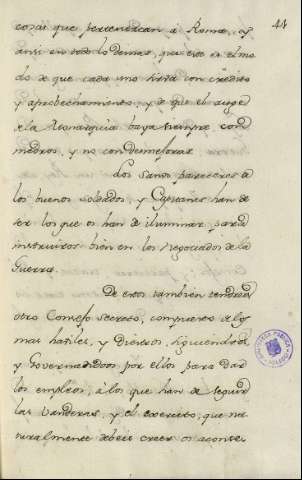 44
cosas que pertenezcan à Roma, y
ansi en todo lo demas, que este es el mo
do de que cada uno sirva con credito
y aprobechamento, y de que el auge
de la Monarquia baya siempre con
medros, y no condesmejoras.
Los sanos pareceres de
los buenos soldados, y Capitanes han de
ser los que os han de iluminar, para
instruiros bien en los Negociados de la
Guerra.
De estos tambien tendreis
otro Consejo secreto, compuesto de los
mas habiles, y Diestros, siguiendoos
y Governandoos por ellos para dar
los empleos, à los que han de seguir
las vanderas, y el exercito, que na
turalmente debeis creer os aconse